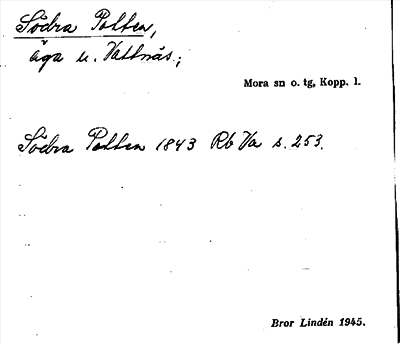 Södra Potten,
äga u. Vattnäs.;
Mora sn o. tg, Kopp. l.
Södra Potten 1843 Rb Va s. 253.
Bror Lindén 1945.